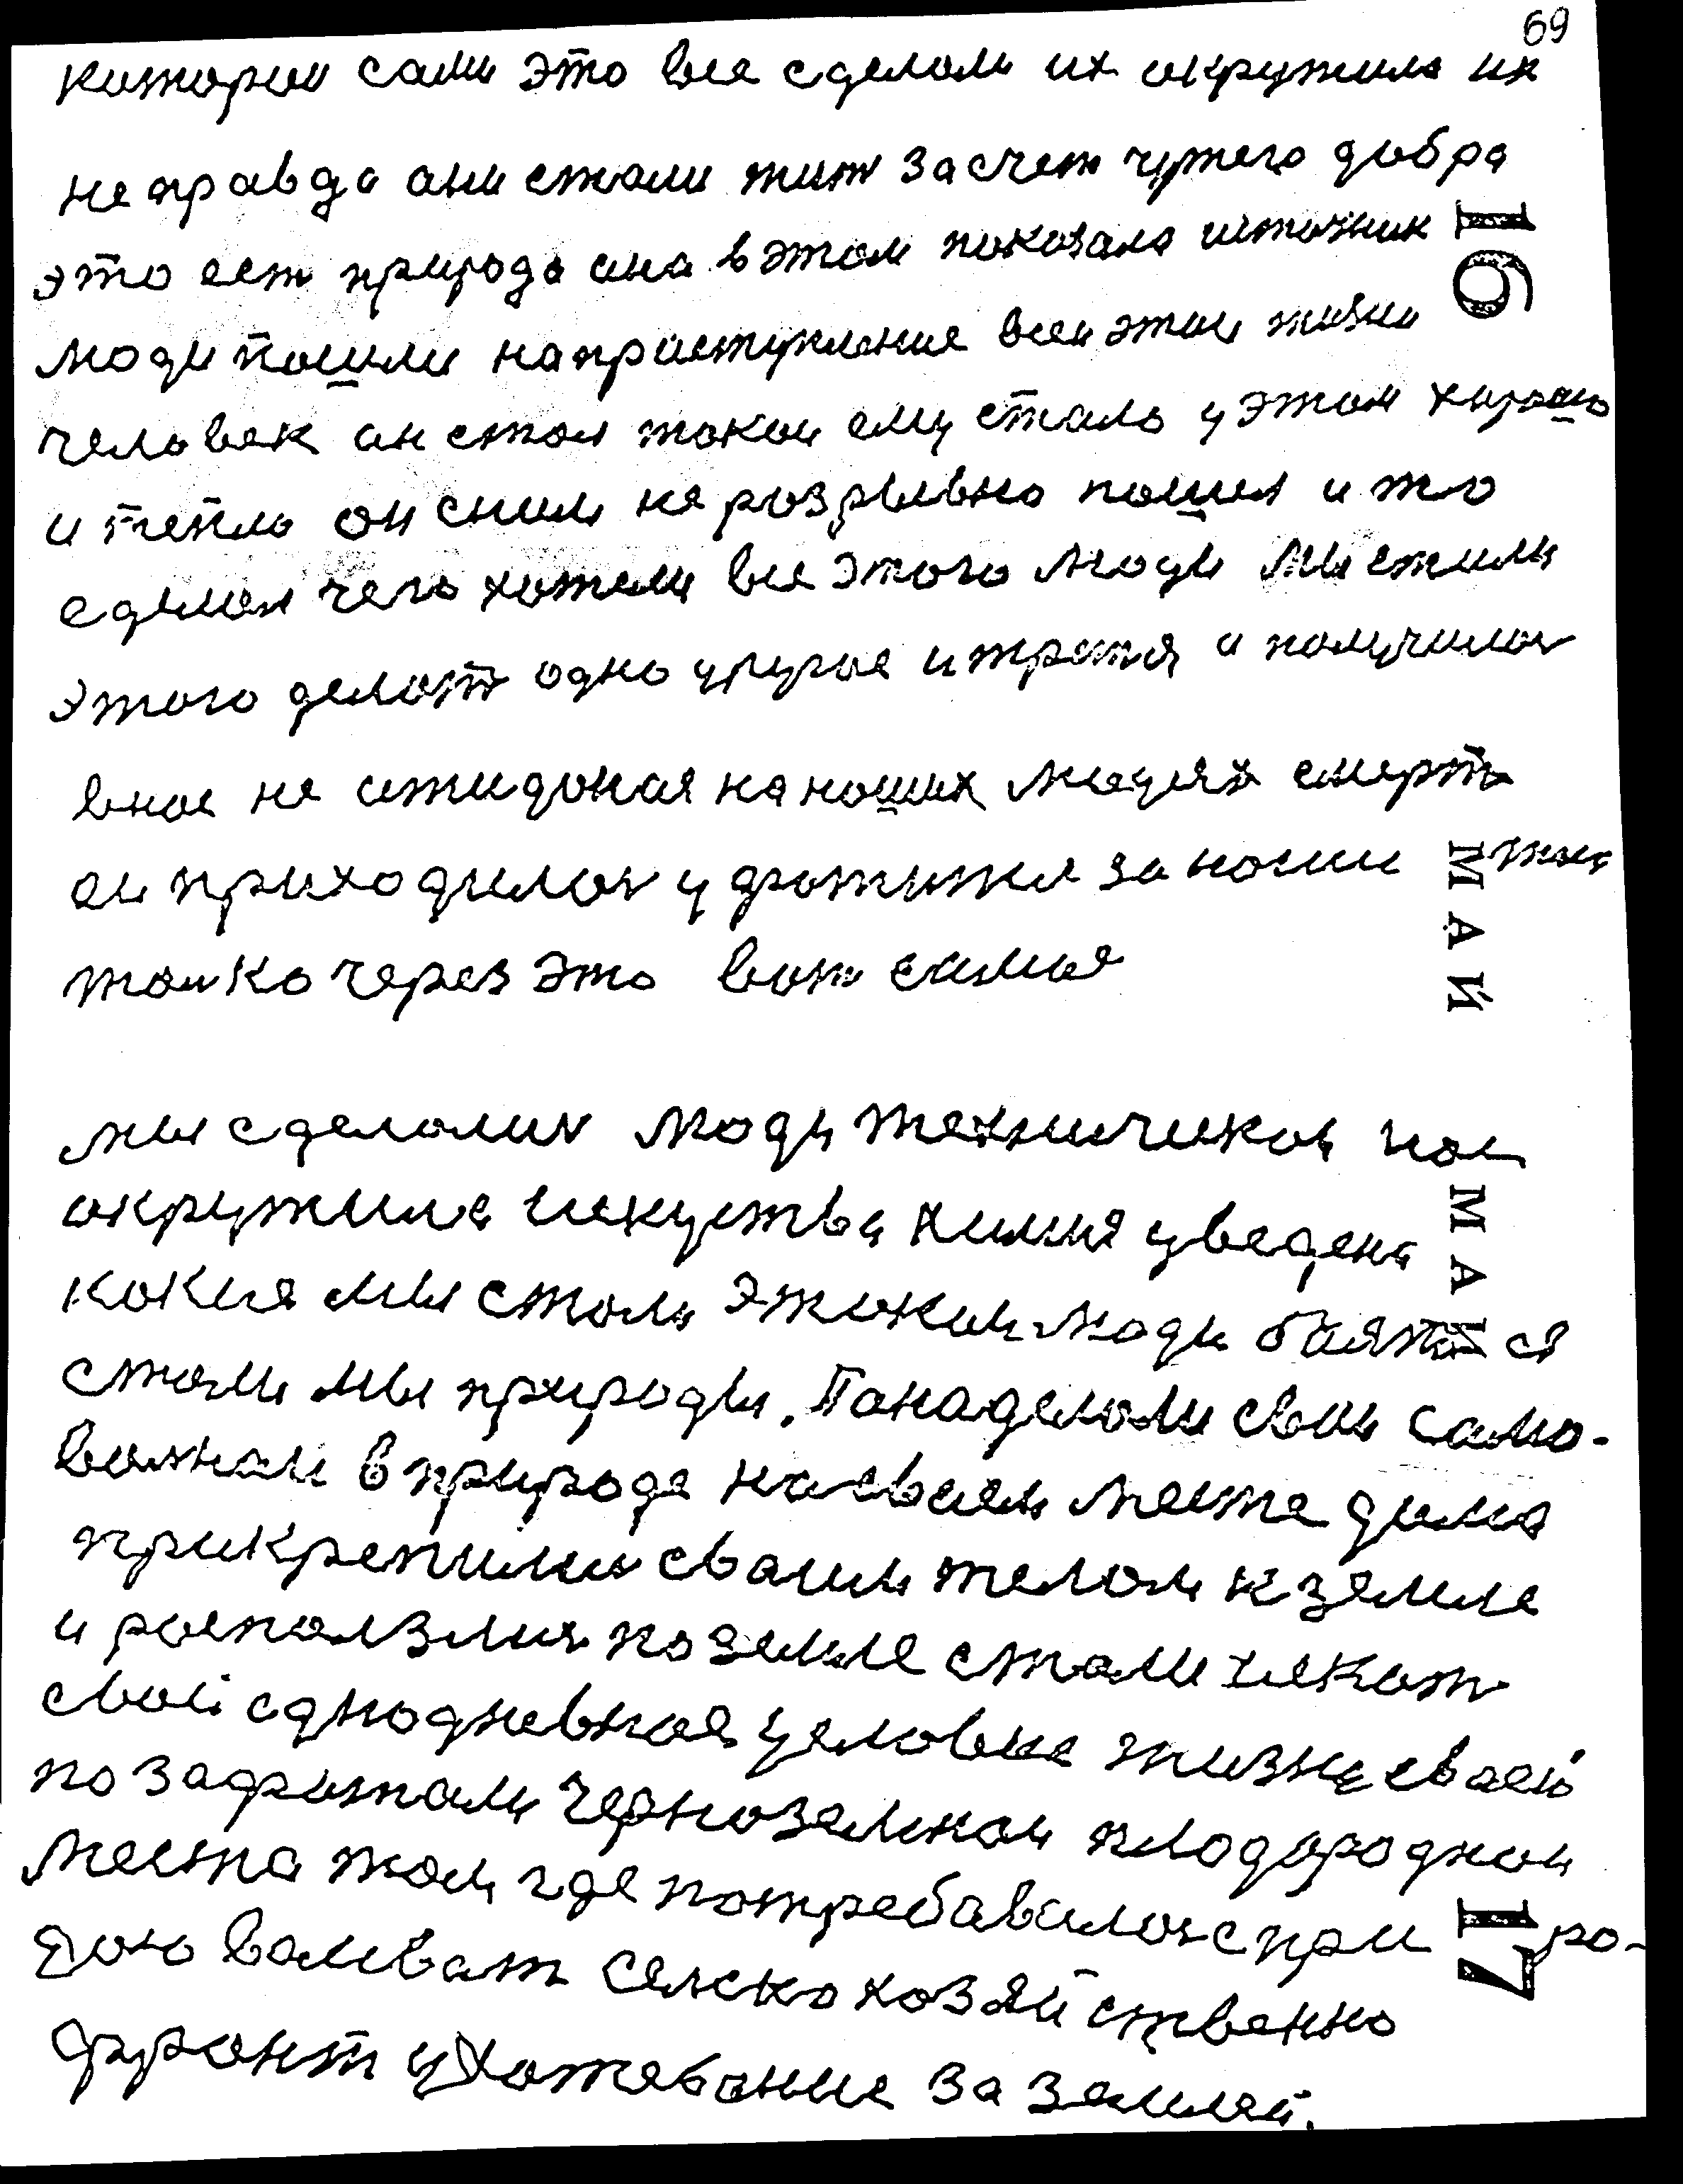 69
котории сами это все сделали их окружила их
не правда они стали жит за счет чужего добра
это ест природа она в этом показала источник
16
люди пошли на приступление всеи этои жизни
человек он стал такои ему стало у этом хорошо
и тепло он сним не розрывно пошел и то
сделал чего хотели все этого люди Мы стали
этого делат одно другое и третя и получилос
вное не ожиданая на наших людях смерт
МАЙ
ей приходилос у дротижа за ноги тик
толко через это вот самае
мы сделалис люди техничиков нас
окружила искуства химия уведена
МАЙ
какия мы стали этакии люди боятся
стали мы природы. Понаделали свои само-
в природе на своем месте дома
прикрепилис своим телом к земле
и росползлис по земле стали искат
свои однодневная условие жизне своей
по захритали черноземнои плодородной
места там где потребавалос с при ро-
17
дою воеват селскохозяйственно
фронт ухожевание за землей.